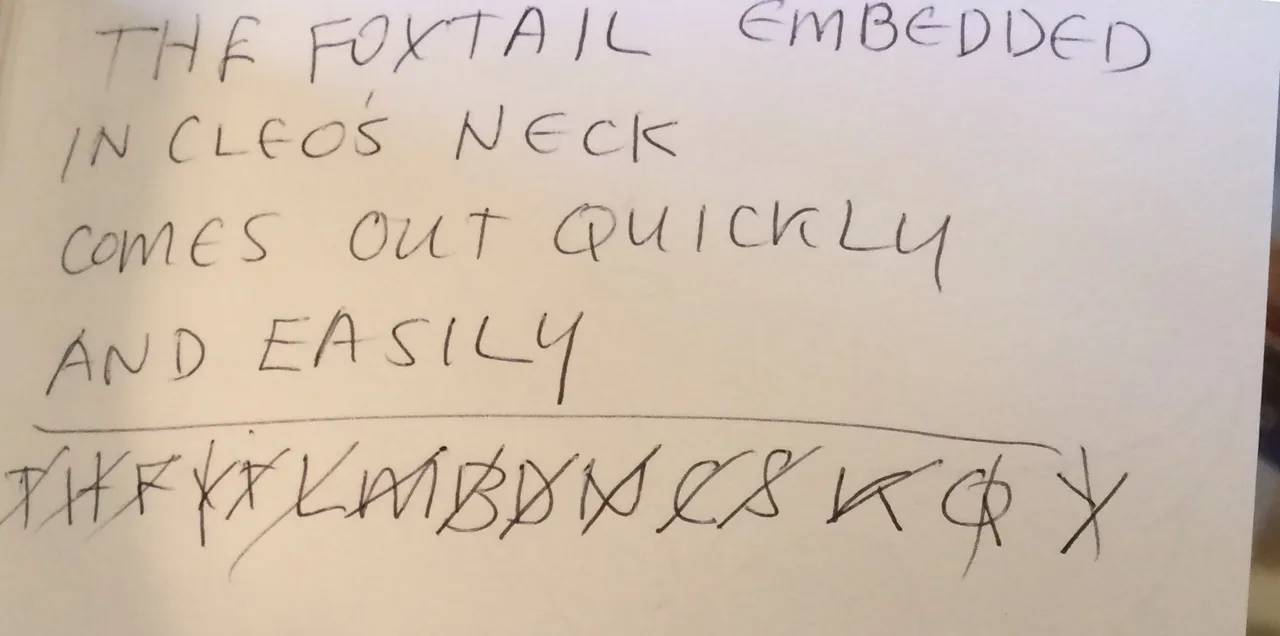 THE FOXTAIL EMBEDDED
IN CLEO'S NECK
COMES OUT QUICKLY
AND EASILY
T H F X T L M B D N C S K Q Y